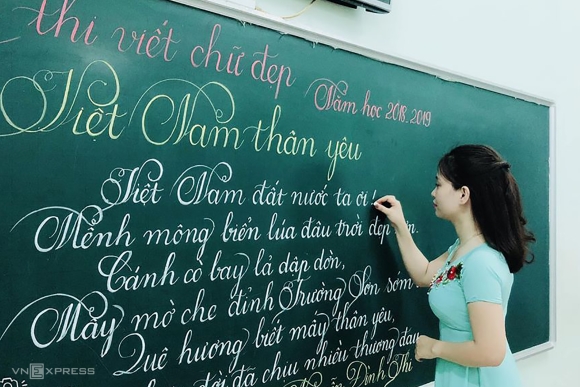 thi viết chữ đẹp
Năm học 2018-2019
Việt Nam thân yêu
Việt Nam đất nước ta ơi!
Mênh mông biển lúa đâu trời đẹp
Cánh cò bay lả dập dờn,
Mây mờ che đỉnh Trường Sơn sớm
Quê hương biết mấy thân yêu,
đời đã chịu nhiều thương đau
Đình Thi
VNEXPRESS